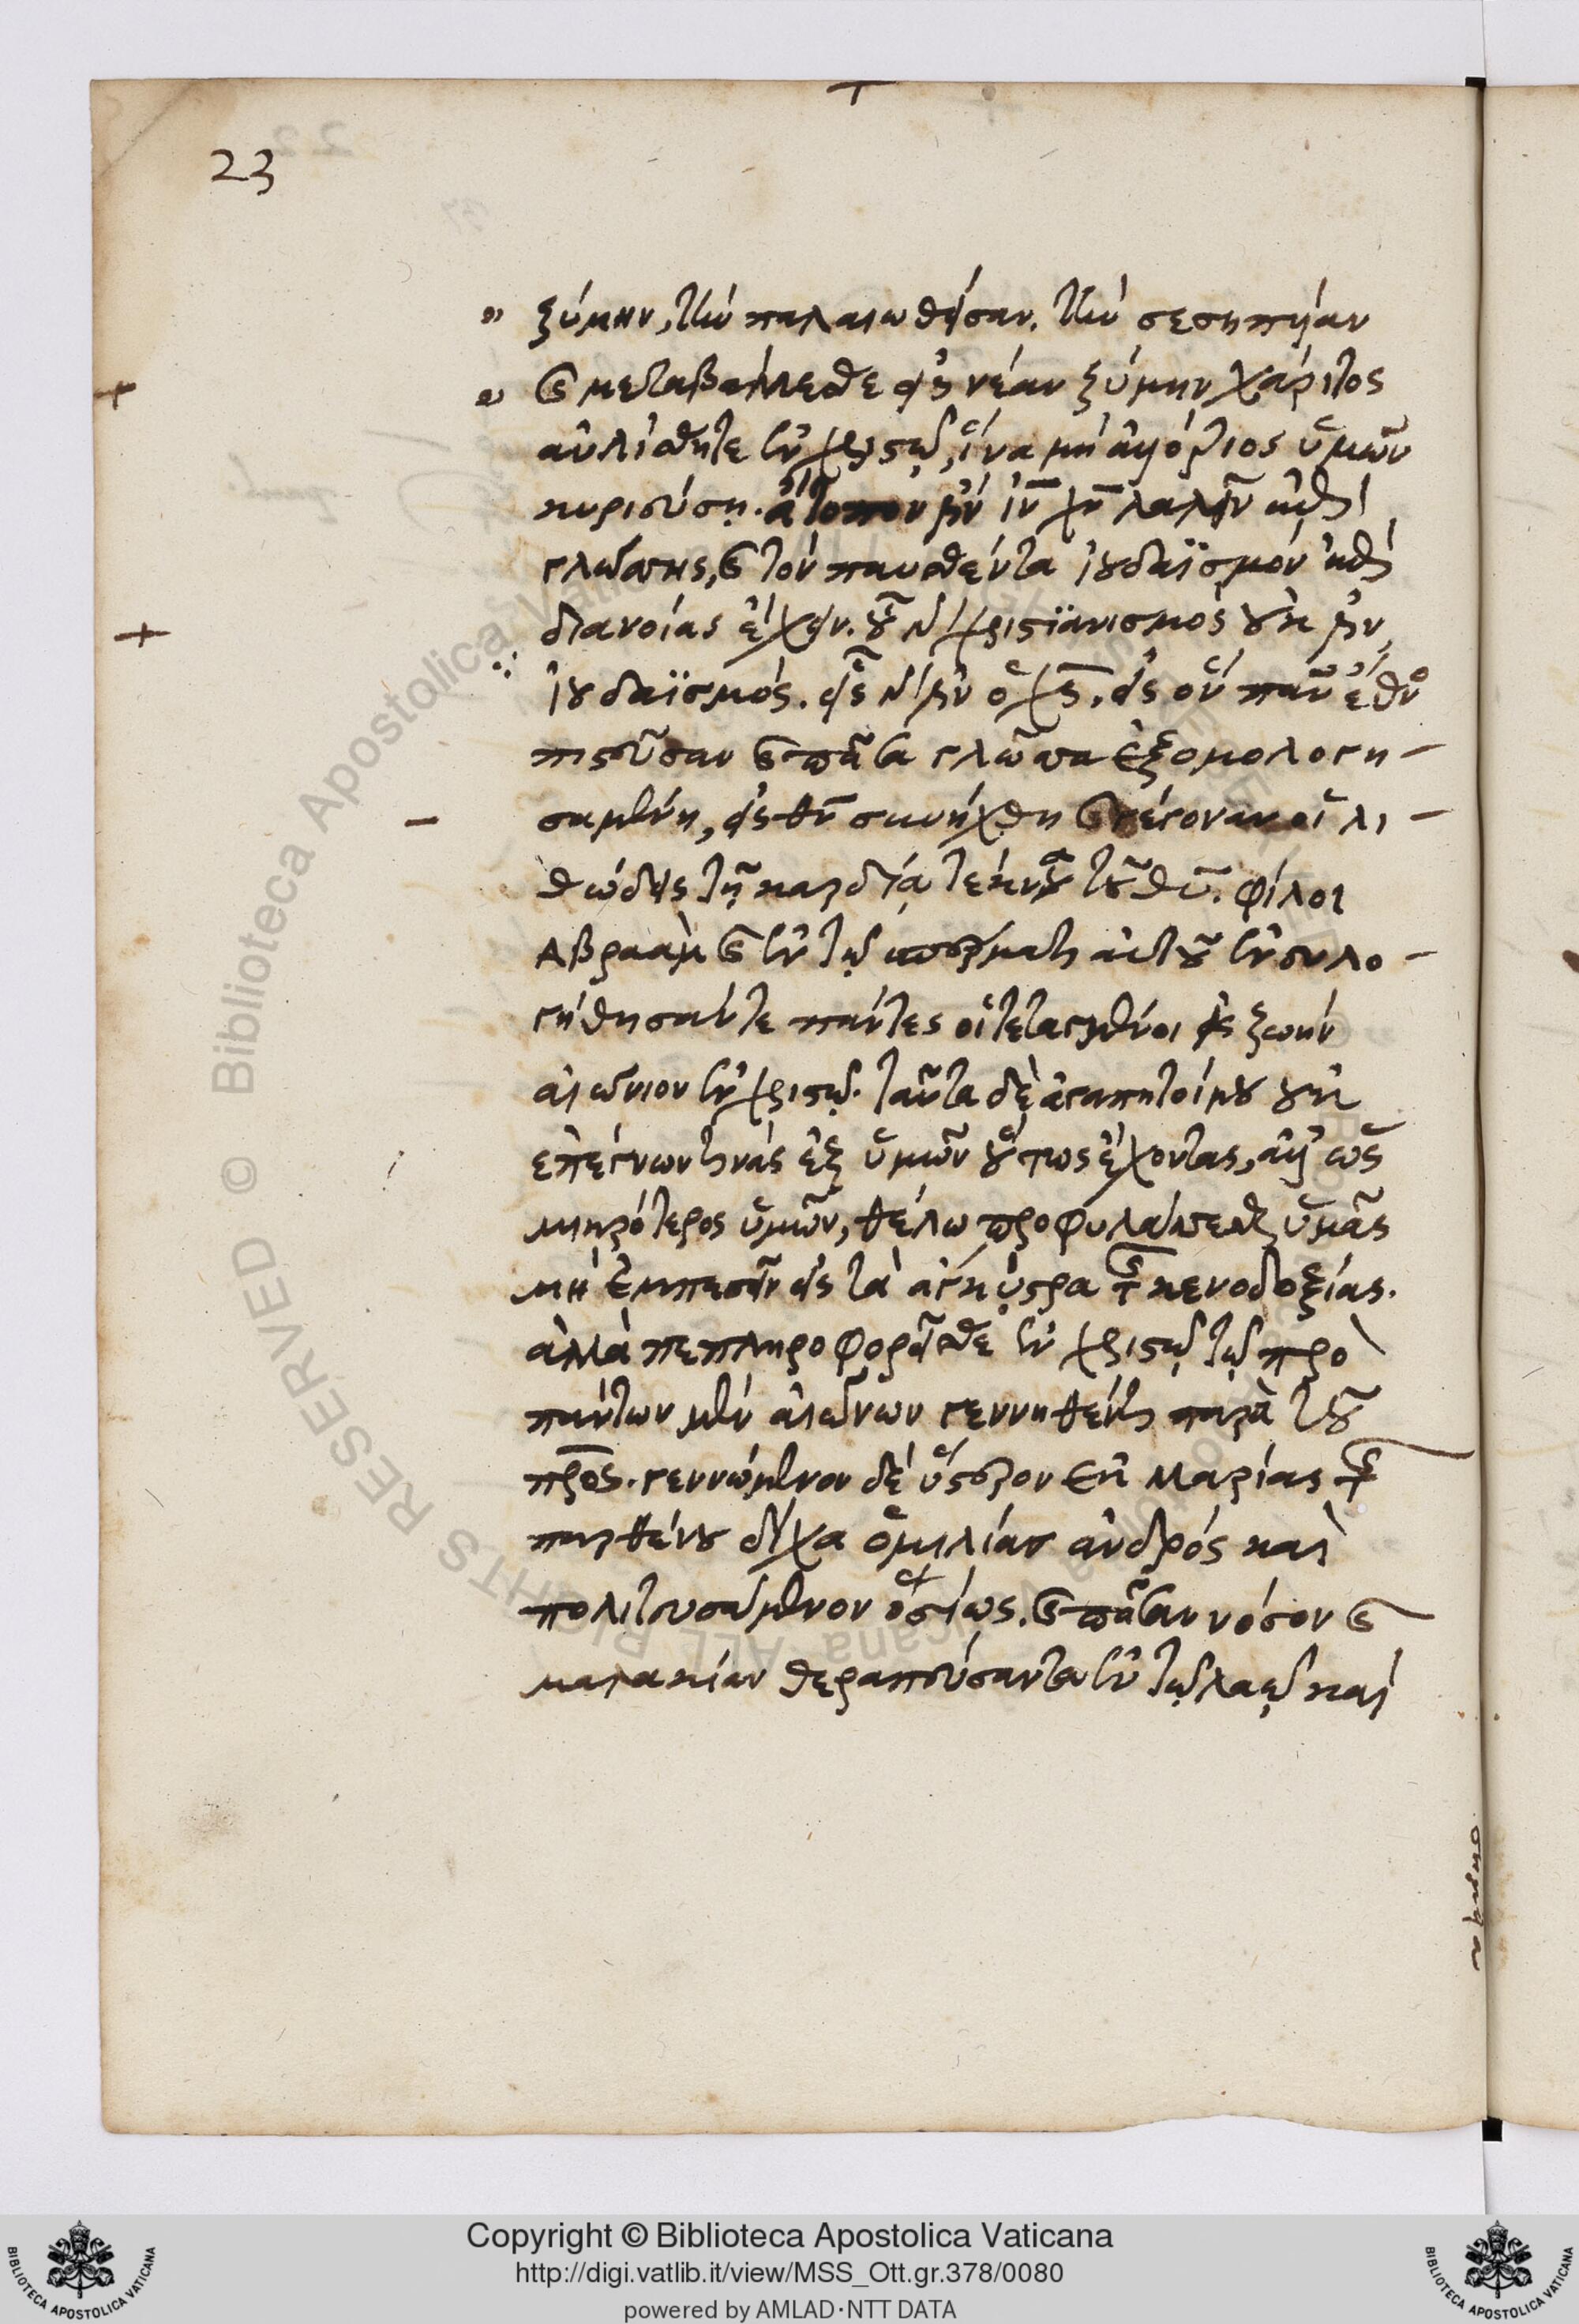 23
ζύμην, τὴν παλαιωθεῖσαν. τὴν σεσηπυῖαν
καὶ μεταβάλλεσθε εἰς νέαν ζύμην χάριτος
αὐλίσθητε ἐν χριστῷ, ἵνα μὴ ἀλλότριος ὑμῶν
κυριεύσῃ. ἄτοπόν ἐστιν ἰν χν λαλεῖν ἐπὶ
γλώσσης, καὶ τὸν παυσθέντα ἰουδαϊσμὸν ἐπὶ
διανοίας ἔχειν. οὗ γὰρ χριστϊανισμὸς οὐκ ἔστιν
ἰουδαϊσμός. εἷς γάρ ἐστιν ὁ χς. εἰς ὃν πᾶν ἔθνος
πιστεῦσαν καὶ πᾶσα γλῶσσα ἐξομολογη-
σαμένη, εἰς θν συνήχθη καὶ γέγοναν οἱ λι-
θώδεις τῇ καρδίᾳ τέκνα τοῦ θυ. φίλοι
Αβραὰμ καὶ ἐν τῷ σπέρματι αὐτοῦ ἐνευλο-
γήθησάν τε πάντες οἱ τεταγμένοι εἰς ζωὴν
αἰώνιον ἐν χριστῷ. ταῦτα δὲ ἀγαπητοί μου οὐκ
ἐπέγνων τινὰς ἐξ ὑμῶν οὕτως ἔχοντας, ἀλλ' ὡς
μικρότερος ὑμῶν, θέλω προφυλάσσεσθαι ὑμᾶς
μὴ ἐμπεσεῖν εἰς τὰ ἄγκιστρα τῆς κενοδοξίας.
ἀλλὰ πεπληροφορεῖσθε ἐν χριστῷ τῷ πρὸ
πάντων μὲν αἰώνων γεννηθέντι παρὰ τοῦ
προς. γεννώμενον δὲ ὕστερον ἐκ Μαρίας τῆς
παρθένου δίχα ὁμιλίας ἀνδρός καὶ
πολιτευσάμενον ὁσίως. καὶ πᾶσαν νόσον καὶ
μαλακίαν θεραπεύσαντα ἐν τῷ λαῷ καὶ
Copyright © Biblioteca Apostolica Vaticana
http://digi.vatlib.it/view/MSS_Ott.gr.378/0080
powered by AMLAD·NTT DATA